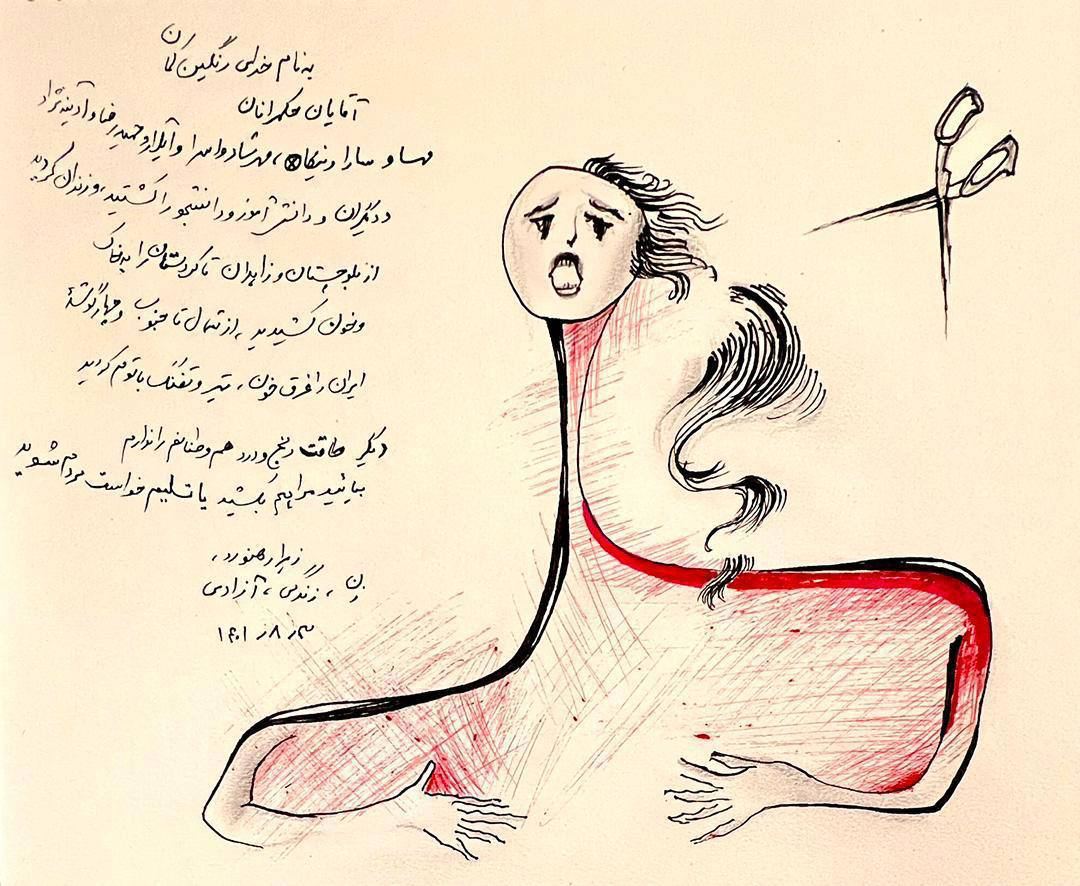 به نام خدای رنگین کمان
آقایان حکمرانان
مهسا و سارا و نیکا، مهرشاد و اسرا و آیلار و حمیدرضا و
و دیگران و دانش آموز و دانشجو را کشتید، و زندان کردید
از بلوچستان و زاهدان تا کردستان را به خاک
و خون کشیدید، از شمال تا جنوب و چهارگوشهٔ
ایران را غرق خون، تیر و تفنگ باتوم کردید
دیگر طاقت رنج و درد هم وطنانم را ندارم
بیائید مرا هم بکشید یا تسلیم خواست مردم شوید
زهرا رهنورد،
زن، زندگی، آزادی
۸ر ۱۴۰۱